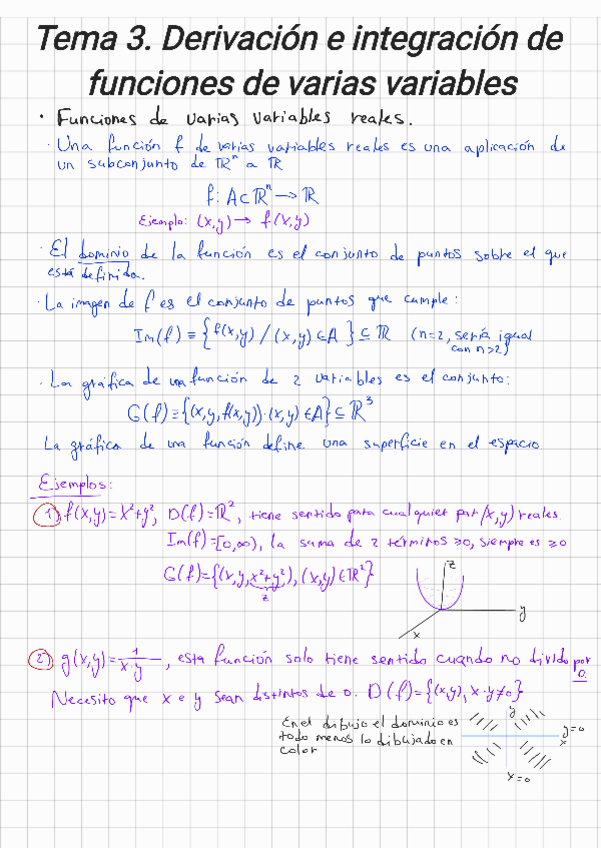 Tema 3. Derivación e integración de
funciones de varias variables
· Funciones de varias variables reales.
· Una función f de varias variables reales es una aplicación de
un subconjunto de ℝⁿ a ℝ
f: A⊂ℝⁿ → ℝ
Ejemplo: (x,y) → f(x,y)
· El dominio de la función es el conjunto de puntos sobre el que
está definida.
· La imagen de f es el conjunto de puntos que cumple:
Im(f) ≡ {f(x,y) / (x,y) ∈ A} ⊆ ℝ (n=2, sería igual
con n>2)
· La gráfica de una función de 2 variables es el conjunto:
G(f) ≡ {(x,y,f(x,y)):(x,y) ∈ A} ⊆ ℝ³
La gráfica de una función define una superficie en el espacio
Ejemplos:
1) f(x,y)=x²+y², D(f)=ℝ², tiene sentido para cualquier par (x,y) reales
Im(f)=[0,∞), la suma de 2 términos ≥0, siempre es ≥0
G(f)={(x,y,x²+y²),(x,y)∈ℝ²}
z
z
y
x
2) g(x,y)=1/x·y, esta función solo tiene sentido cuando no divido por
0.
Necesito que x e y sean distintos de 0. D(f)={(x,y), x·y≠0}
En el dibujo el dominio es
todo menos lo dibujado en
color
y
y=0
x
x=0